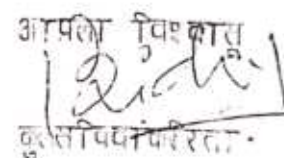 आपला विश्वासू
कुलसचिवांकरिता.